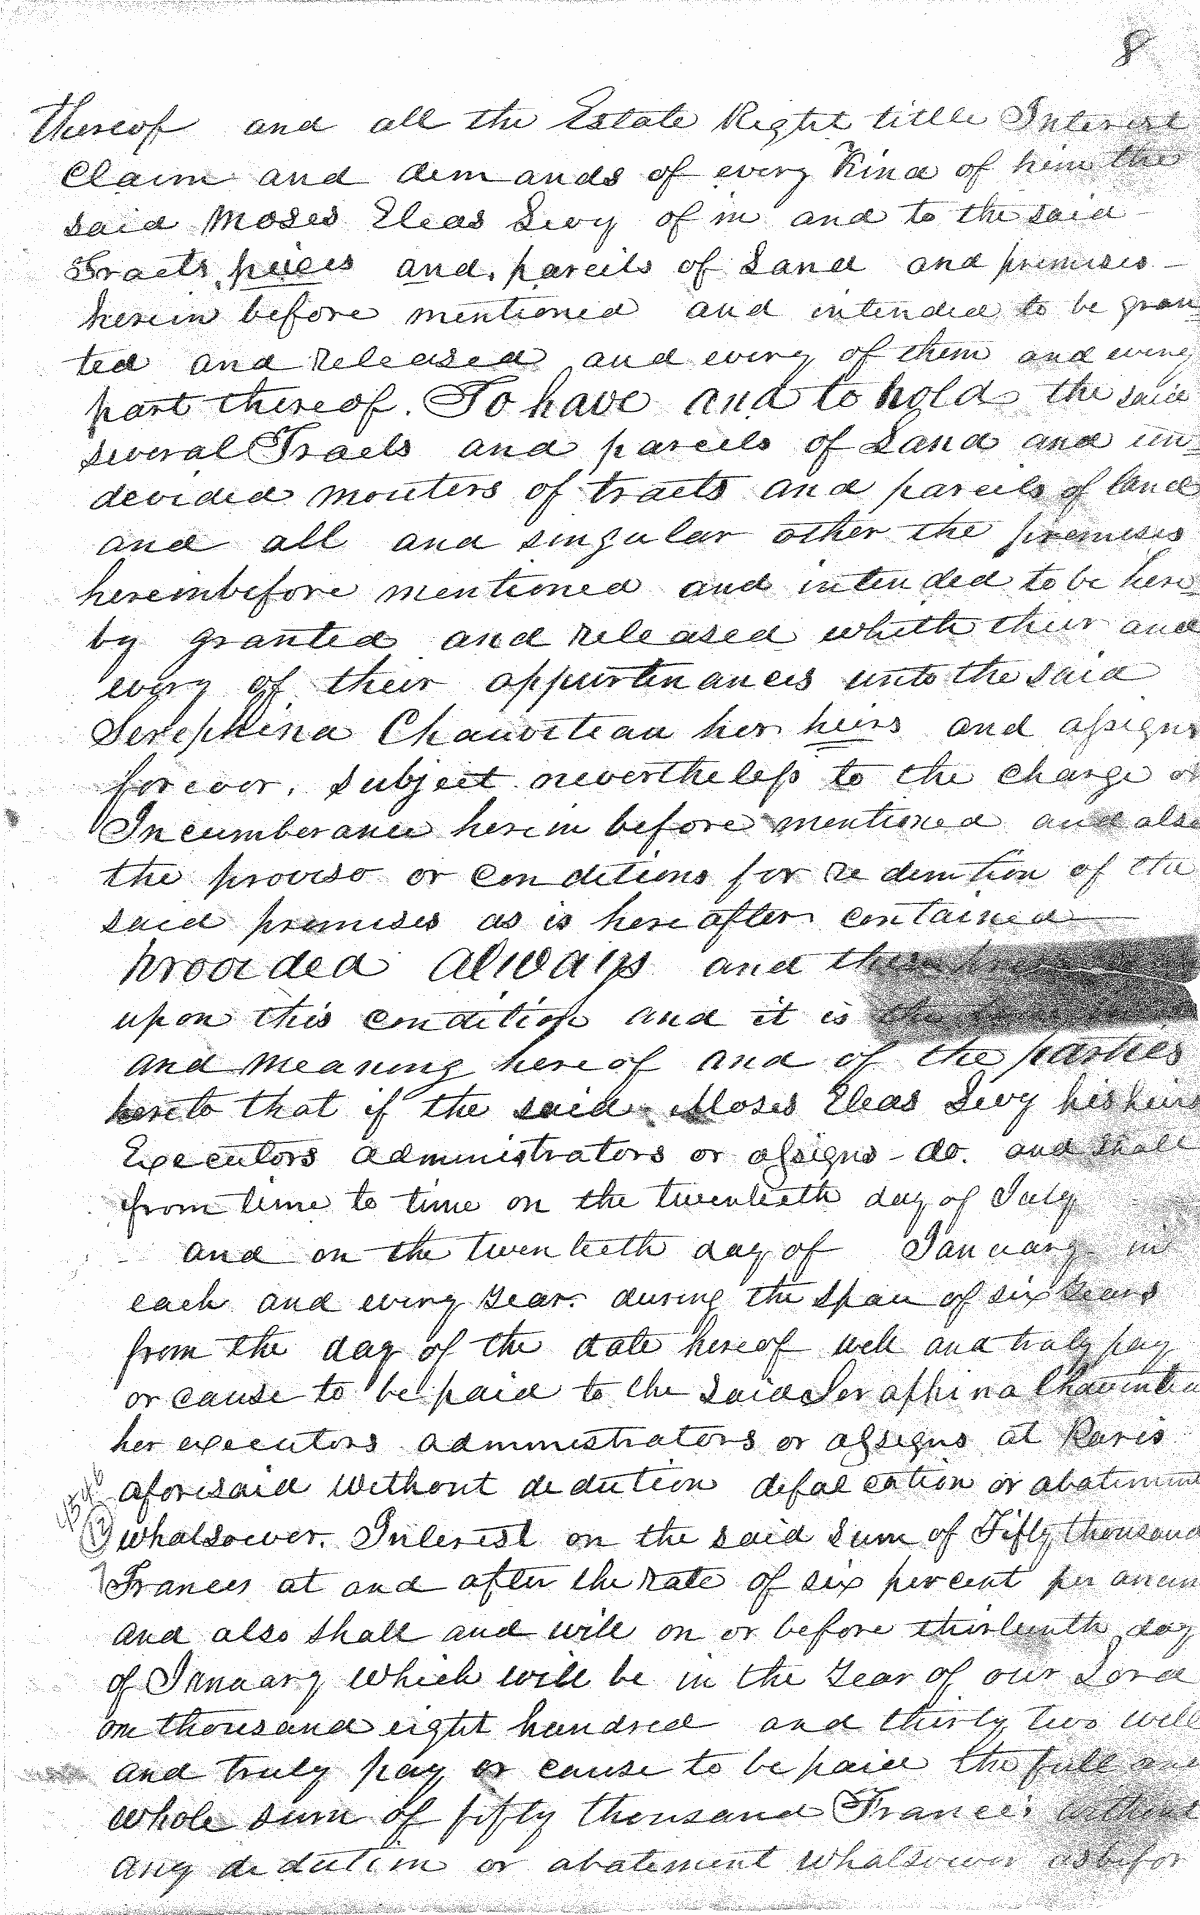 8
Thereof and all the Estate Right title Interest
Claim and demands of every Kind of him the
said Moses Eleas Levy of in and to the said
Tracts, pieces and, parcels of Land and premises
herein before mentioned and intended to be gran
ted and released and every of them and every
part thereof. To have and to hold the said
several Tracts and parcels of Land and un
devided of tracts and parcels of land
and all and singular other the premises
hereinbefore mentioned and intended to be here
by granted and released whith their and
every of their appurtinances unto the said
Serephina Chauviteau her heirs and assigns
forever. Subject nevertheless to the charge or
Incumberance herein before mentioned and also
the proviso or conditions for redemtion of the
said premises as is here after contained
Provided always and
upon this condition and it is the
and meaning hereof and of the parties
hereto that if the said Moses Eleas Levy his heirs
Executors administrators or assigns - do. and shall
from time to time on the twentieth day of July
and on the twentieth day of January in
each and every year. during the space of six years
from the day of the date hereof well and truly pay
or cause to be paid to the said Seraphina
her executors administrators or assigns at Paris
aforesaid without dedution defalcation or abatement
4546
13
7
whatsoever. Interest on the said sum of Fifty thousand
Frances at and after the rate of six percent per anum
and also shall and will on or before thirteenth day
of January which will be in the year of our Lord
on thousand eight hundred and thirty two well
and truly pay or cause to be paid the full and
whole sum of fifty thousand Frances without
any dedution or abatement whatsoever as befor